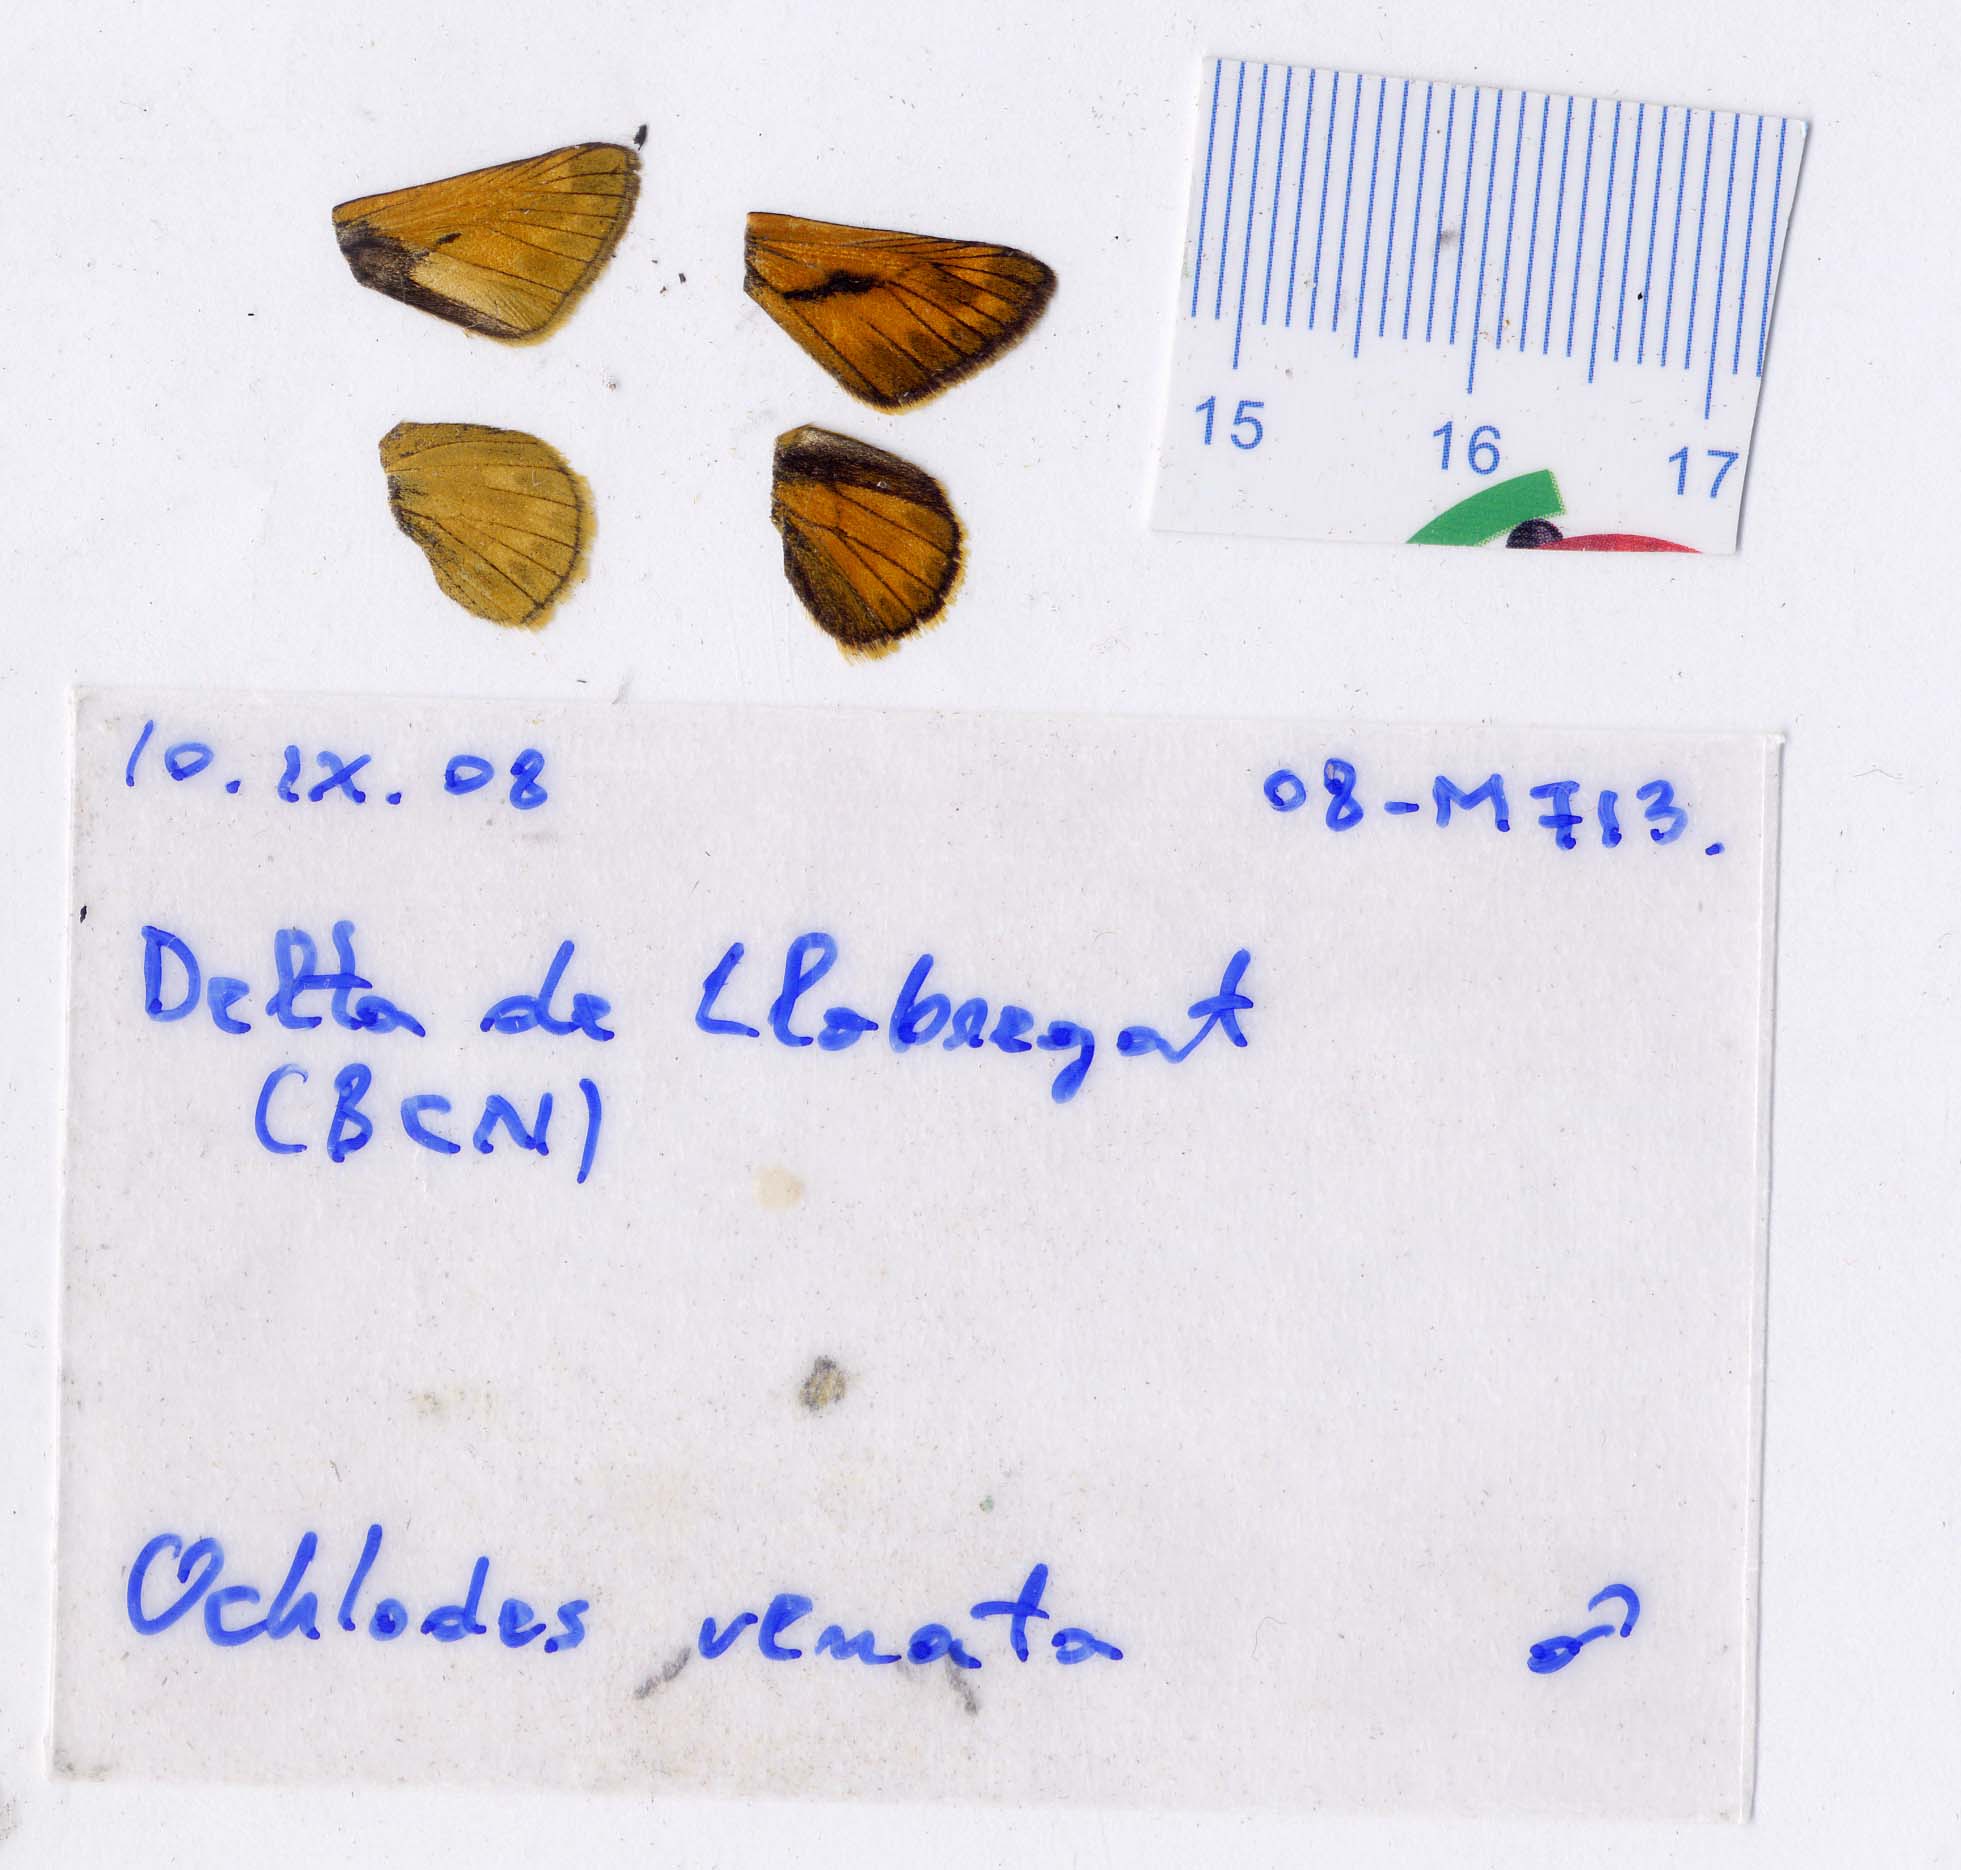 15 16 17
10.IX.08 08-M713.
Delta de Llobregat
(BCN)
Ochlodes venata ♂